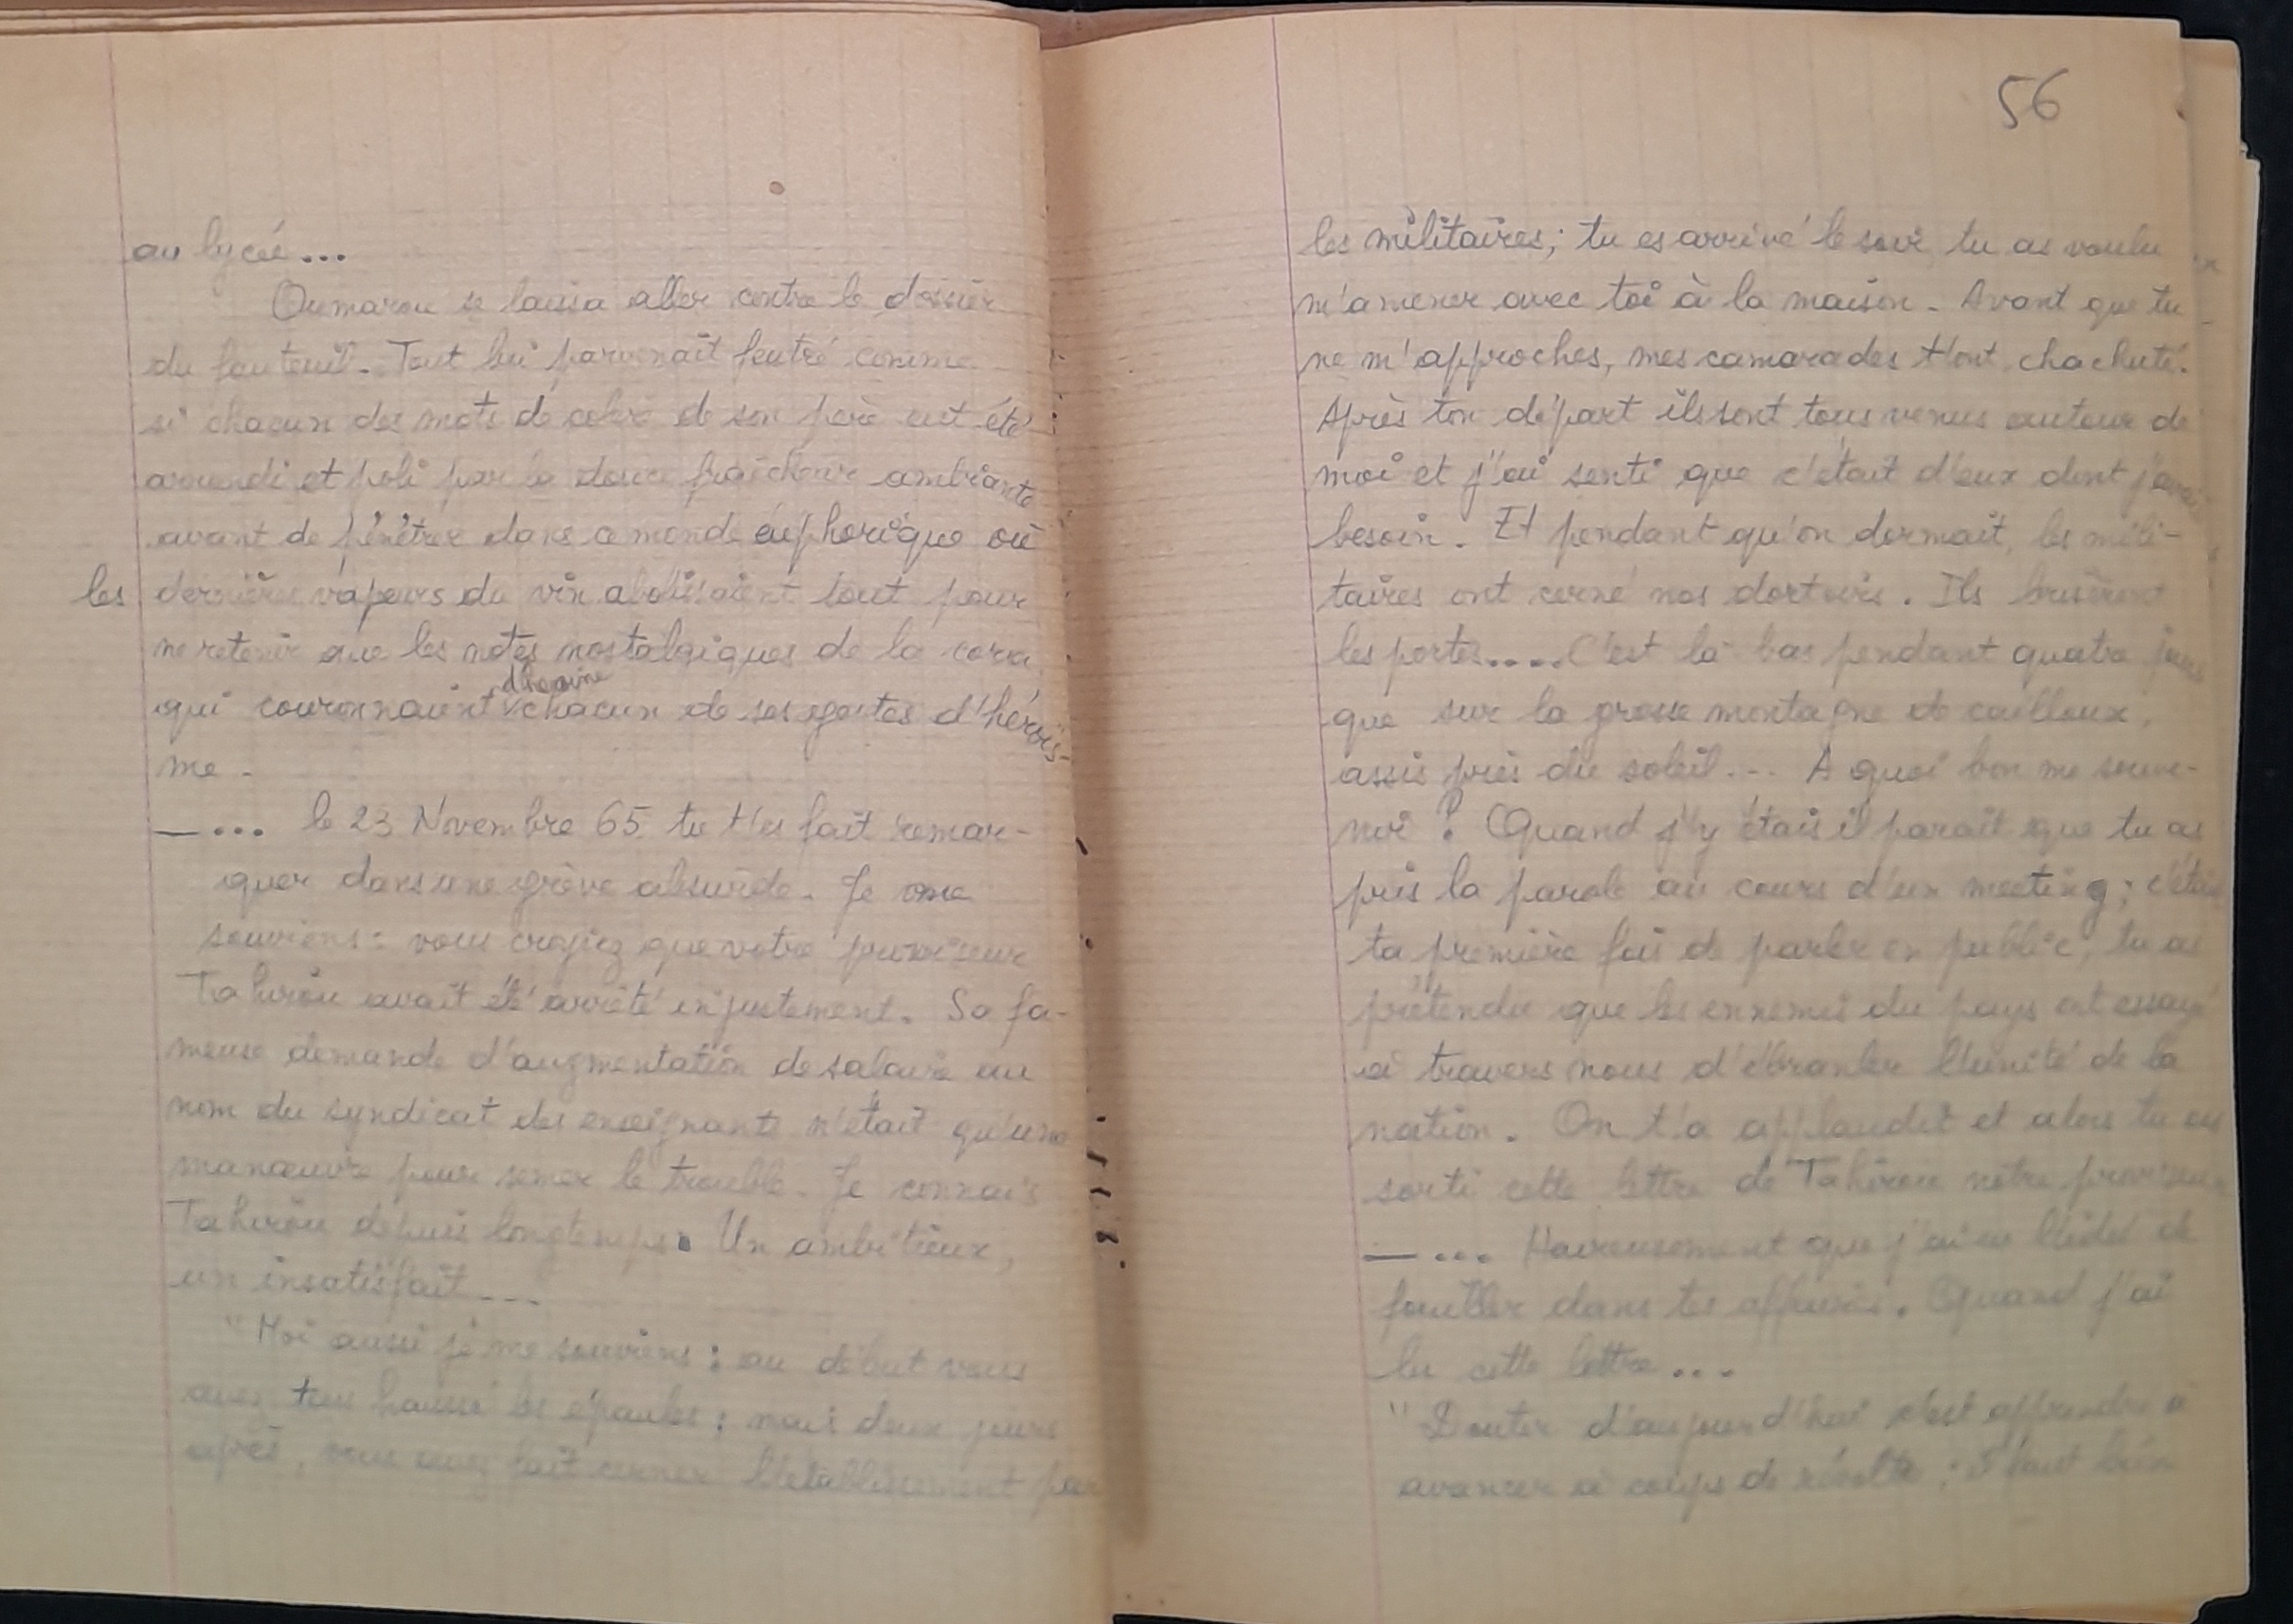 au lycée...
Oumarou se laissa aller contre le dossier
du fauteuil. Tout lui parvenait feutré comme
si chacun des mots de colère de son père eut été
arrondi et poli par la douce fraîcheur ambiante
avant de pénétrer dans ce monde euphorique où
les dernières vapeurs du vin abolissaient tout pour
ne retenir que les notes nostalgiques de la cora
qui couronnaient chacun de ses gestes d'héroïs-
me.
—... le 23 Novembre 65 tu t'es fait remar-
quer dans une grève absurde. Je me
souviens : vous croyiez que votre proviseur
Tahirou avait été arrêté injustement. Sa fa-
meuse demande d'augmentation de salaire au
nom du syndicat des enseignants n'était qu'une
manœuvre pour semer le trouble. Je connais
Tahirou depuis longtemps. Un ambitieux,
un insatisfait...
"Moi aussi je me souviens : au début vous
avez tous haussé les épaules ; mais deux jours
après, vous avez fait cerner l'établissement par
56
les militaires ; tu es arrivé le soir, tu as voulu
m'amener avec toi à la maison. Avant que tu
ne m'approches, mes camarades t'ont chachuté.
Après ton départ ils sont tous venus autour de
moi et j'ai senti que c'était d'eux dont j'avais
besoin. Et pendant qu'on dormait, les mili-
taires ont cerné nos dortoirs. Ils brisèrent
les portes.... C'est là-bas pendant quatre jours
que sur la grosse montagne de cailloux,
assis près du soleil... A quoi bon me souve-
nir ? Quand j'y étais il parait que tu as
pris la parole au cours d'un meeting ; c'était
ta première fois de parler en public, tu as
prétendu que les ennemis du pays ont essayé
à travers nous d'ébranler l'unité de la
nation. On t'a applaudit et alors tu as
sorti cette lettre de Tahirou notre proviseur
—... Heureusement que j'ai eu l'idée de
fouiller dans tes affaires. Quand j'ai
lu cette lettre...
"Douter d'aujourd'hui c'est apprendre à
avancer à coups de révolte ; il faut bien